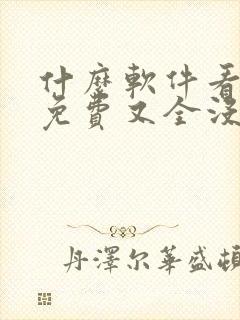 什麼軟件看
免費又全沒
丹澤尔華盛頓